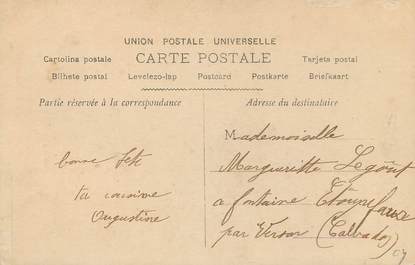 UNION POSTALE UNIVERSELLE
CARTE POSTALE
Cartolina postale
Tarjeta postal
Bilhete postal Levelezo-lap Postcard Postkarte Briefkaart
Partie réservée à la correspondance
Adresse du destinataire
bonne fête
ta cousine
Augustine
Mademoiselle
Margueritte Legout
a fontaine Etoupefour
par Verson (Calvados)
07